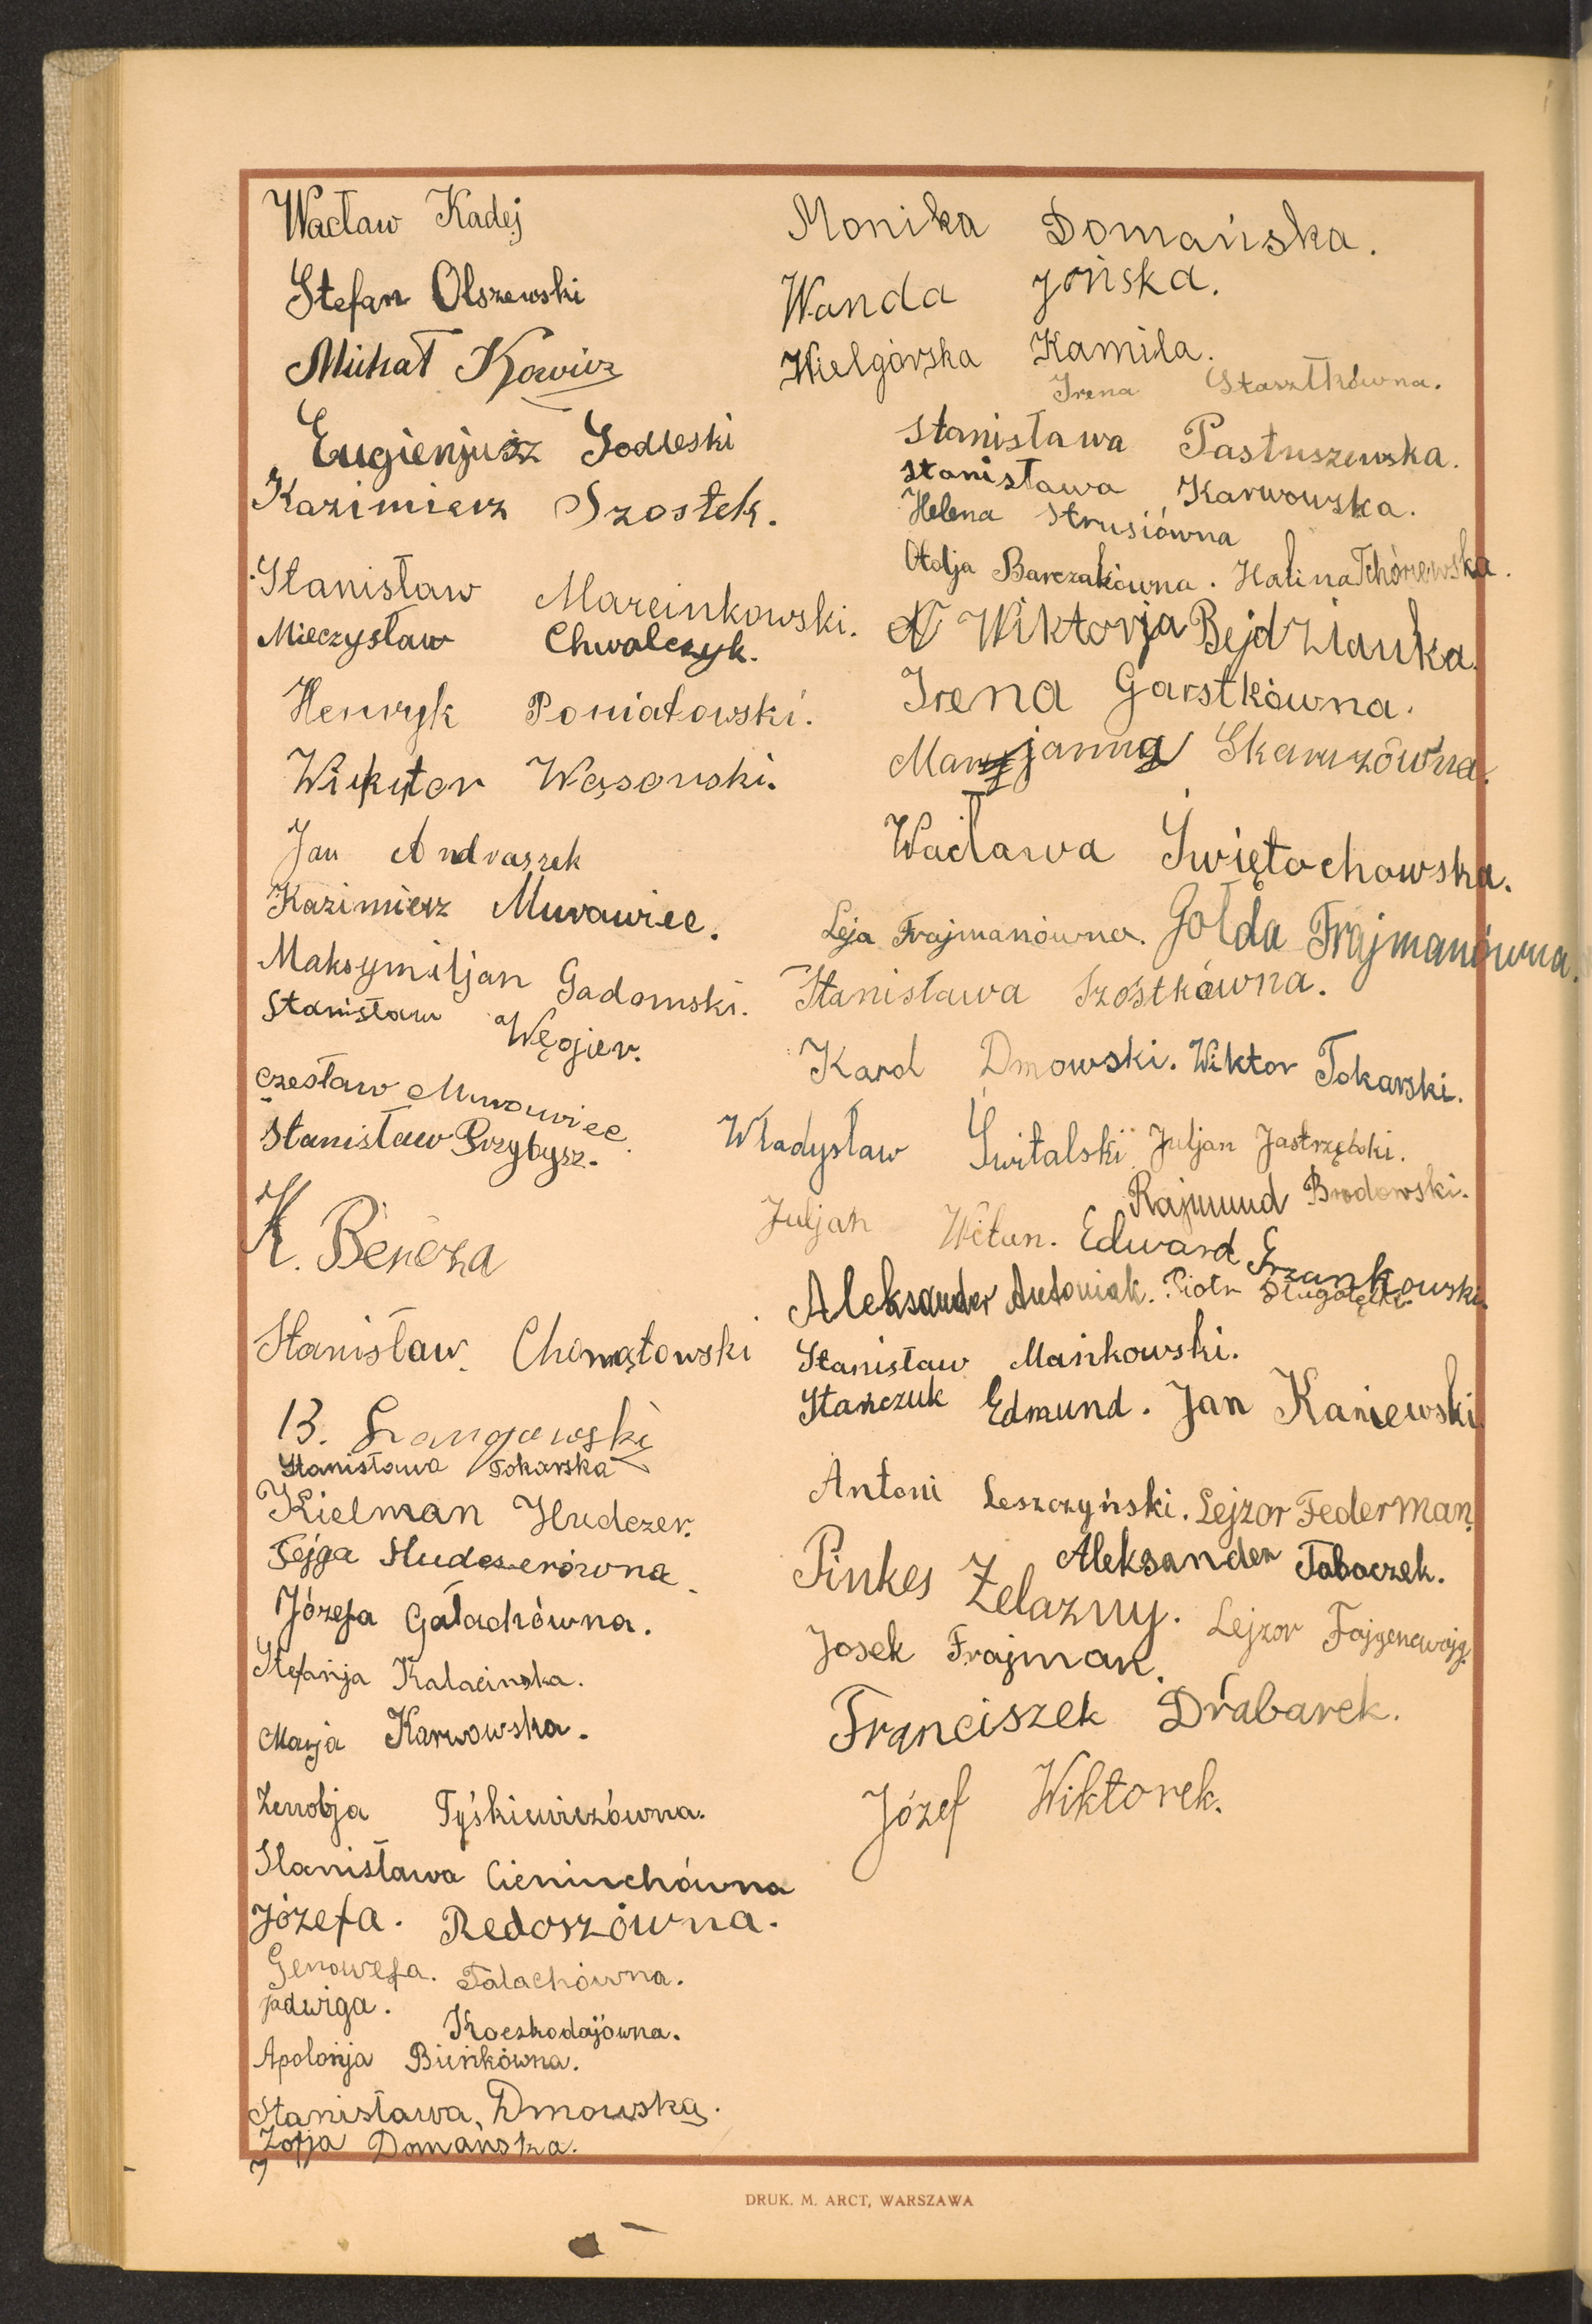 Wacław Kadej
Stefan Olszewski
Michał Kowicz
Eugienjusz Jodłeski
Kazimierz Szostek.
Stanisław Marcinkowski.
Mieczysław Chwalczyk.
Henryk Poniatowski.
Wiktor Wąsowski.
Jan Andraszek
Kazimierz Murawiec.
Maksymiljan Gadomski.
Stanisław Węgier.
Czesław Murawiec.
Stanisław Przybysz.
K. Bereza
Stanisław Chomątowski
B.
Stanisława Tokarska
Kielman Hudczer.
Fejga Hudczerówna.
Józefa Gałachówna.
Stefanja Kalacinska.
Marja Karwowska.
Zenobja Tyśkiewiczówna.
Stanisława Cieniuchówna
Józefa. Redoszówna.
Genowefa. Talachówna.
Jadwiga. Koczkodajówna.
Apolonja Bieńkówna.
Stanisława, Dmowska.
Zofja Domańska.
Monika Domańska.
Wanda Jońska.
Wielgórska Kamila.
Irena
Stanisława Pastuszewska.
Stanisława Karwowska.
Helena Strusiówna
Otolja Barczakówna. Halina Tchórzewska.
Wiktorja Bejdzianka.
Irena Garstkówna.
Marjanna Skaruzówna.
Wacława Świętochowska.
Leja Frajmanówna. Gołda Frajmanówna.
Stanisława Szostkówna.
Karol Dmowski. Wiktor Tokarski.
Władysław Świtalski Juljan Jastrzębski.
Rajmund Brodowski.
Juljan Witun. Edward Frankowski.
Aleksander Antoniak. Piotr Długołęcki.
Stanisław Mańkowski.
Stańczuk Edmund. Jan Kaniewski.
Antoni Leszczyński. Lejzor Federman.
Aleksander Tabaczek.
Pinkes Żelazny.
Lejzor Fajgencwajg.
Josek Frajman.
Franciszek Drabarek.
Józef Wiktorek.
DRUK. M. ARCT, WARSZAWA